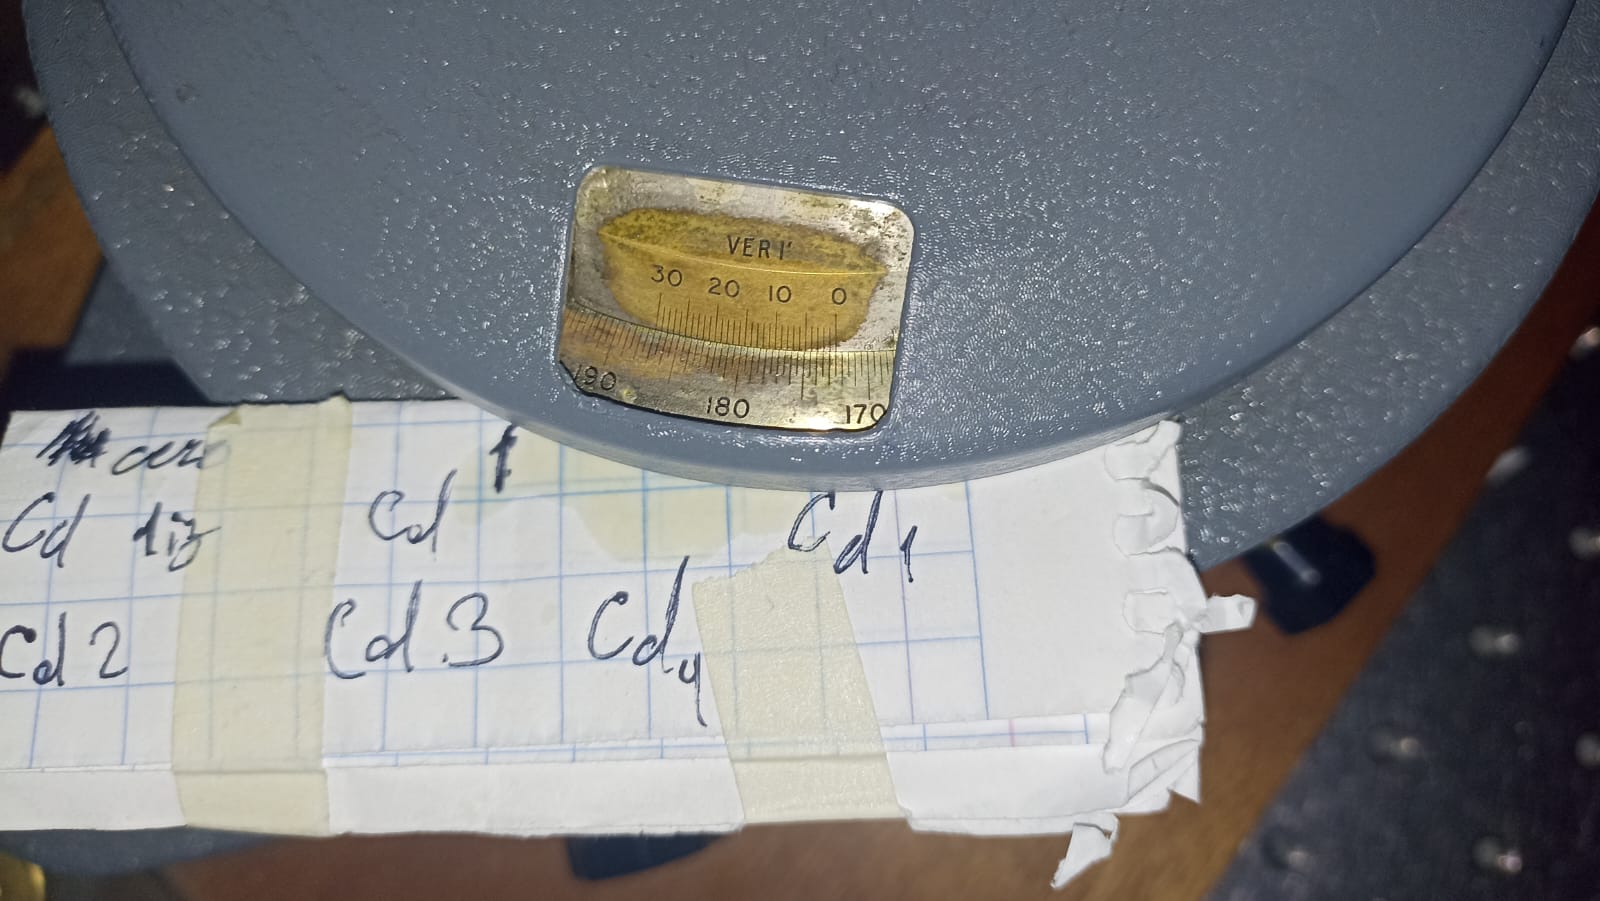 VER 1'
30 20 10 0
190 180 170
cero
Cd 1iz Cd 1 Cd1
Cd2 Cd.3 Cd4